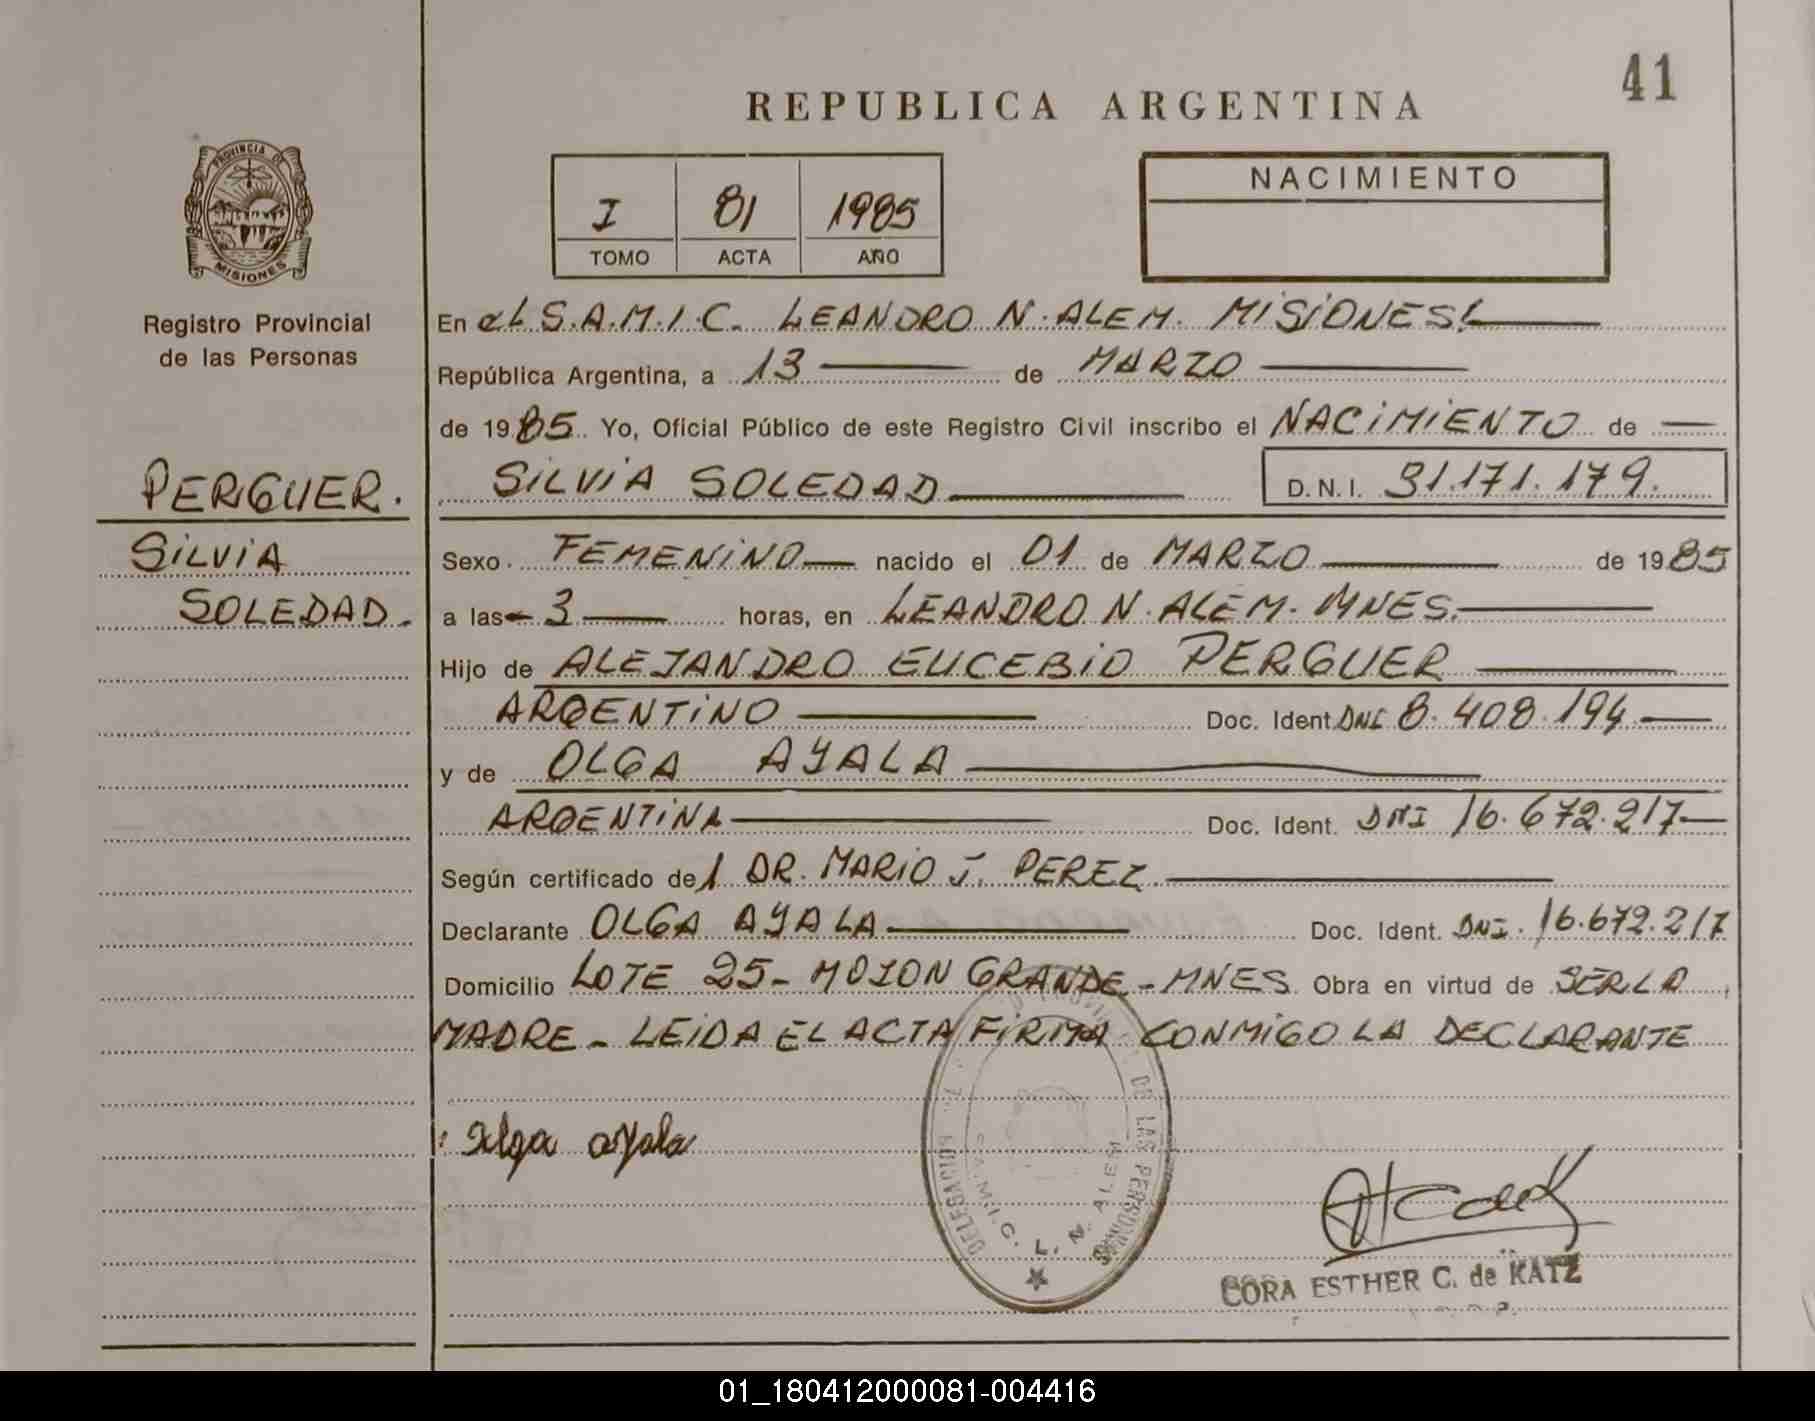 41
REPUBLICA ARGENTINA
PROVINCIA DE
MISIONES
Registro Provincial
de las Personas
I 81 1985
TOMO ACTA AÑO
NACIMIENTO
En el S.A.M.I.C. LEANDRO N. ALEM. MISIONES
República Argentina, a 13 de MARZO
de 1985. Yo, Oficial Público de este Registro Civil inscribo el NACIMIENTO de
PERGUER.
SILVIA
SOLEDAD.
SILVIA SOLEDAD D.N.I. 31.171.179.
Sexo FEMENINO nacido el 01 de MARZO de 1985
a las 3 horas, en LEANDRO N. ALEM. MNES.
Hijo de ALEJANDRO EUCEBIO PERGUER
ARGENTINO Doc. Ident. DNI 8.408.194
y de OLGA AYALA
ARGENTINA Doc. Ident. DNI 16.672.217
Según certificado del DR. MARIO J. PEREZ.
Declarante OLGA AYALA Doc. Ident. DNI. 16.672.217
Domicilio LOTE 25 - MOJON GRANDE - MNES Obra en virtud de SER LA
MADRE - LEIDA EL ACTA FIRMA CONMIGO LA DECLARANTE
Olga ayala
DELEGACION DE LAS PERSONAS
S.A.M.I.C. L. N. ALEM
CORA ESTHER C. de KATZ
01_180412000081-004416